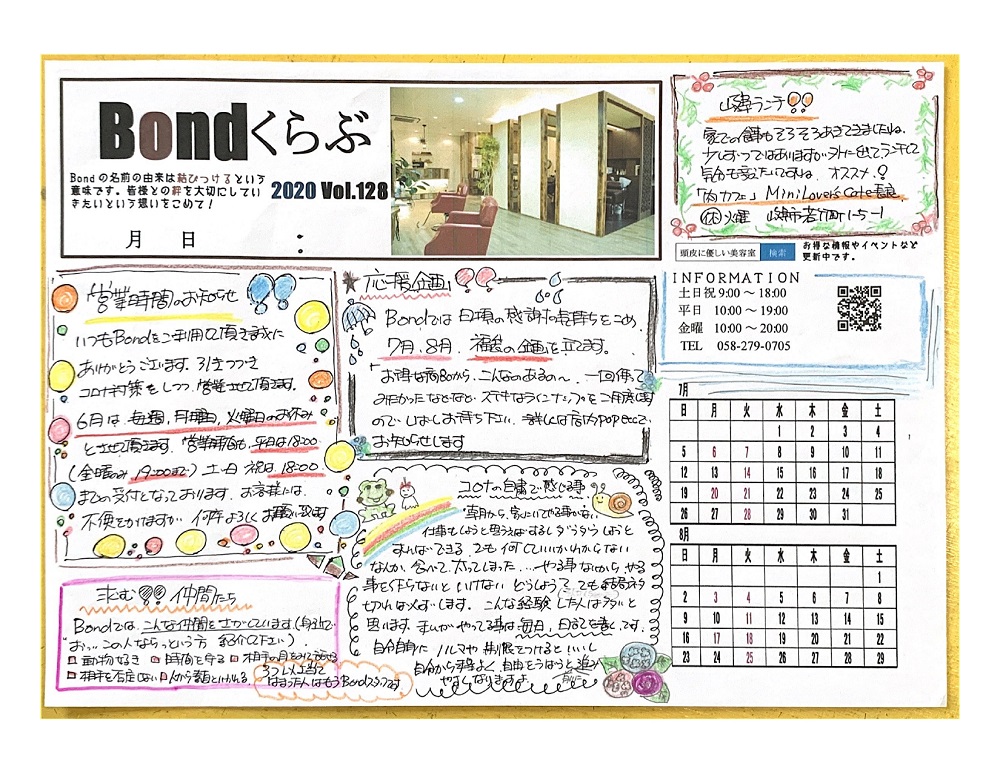 Bondくらぶ
Bondの名前の由来は結びつけるという
意味です。皆様との絆を大切にしてい
きたいという想いをこめて！
2020 Vol.128
月 日 :
岐阜ランチ
家での食事もそろそろあきてきましたね。
少しずつではありますが外に出てランチして
気分も変えたいですね。オススメ
「肉カフェ」 Mini Lovers Cafe
㊡火曜 岐阜市若竹町1-5-1
頭皮に優しい美容室 検索
お得な情報やイベントなど
更新中です。
INFORMATION
土日祝 9:00～18:00
平日 10:00～19:00
金曜 10:00～20:00
TEL 058-279-0705
営業時間のお知らせ
いつもBondをご利用して頂きまして
ありがとうございます。引きつづき
コロナ対策をしつつ、営業させて頂きます。
6月は、毎週、月曜日、火曜日のお休み
とさせて頂きます。営業時間も、平日は18:00
(金曜のみ19:00まで) 土・日・祝は、18:00
までの受付となっております。お客様には、
不便をかけますが、何卒よろしくお願い致します
応援企画
Bondでは日頃の感謝の気持ちをこめ、
7月、8月、福袋の企画を立てます。
お得な商品から、こんなのあるの～、一回使って
みたかったなどなど、ステキなラインナップをご用意します
ので、しばしお待ち下さい。詳しくは店内POPなどで
お知らせします
コロナの自粛で感じる事
仕事もしようと思えばするし、ダラダラしようと
すればできる。でも何していいかわからない
なんか、全べて、太ってしまった…。やる事ないから、やる
事を作らないといけない。どうしよう。でもお局ネタ
切れは必ずします。こんな経験した人は多いと
思います。まぁ、今やってる事は毎日、日記を書く、です。
自分自身に、ノルマや制限をつけるといいし
求む 仲間たち
Bondでは、こんな仲間をさがしています(身近で
おっ、この人ならっという方、紹介して下さい)
□動物好き □時間を守る □相手の目をみて話せる
□相手を否定しない □人から素直といわれる。
3つ以上当て
はまった人はもうBondスタッフです
7月
日 月 火 水 木 金 土
1 2 3 4
5 6 7 8 9 10 11
12 13 14 15 16 17 18
19 20 21 22 23 24 25
26 27 28 29 30 31
8月
日 月 火 水 木 金 土
1
2 3 4 5 6 7 8
9 10 11 12 13 14 15
16 17 18 19 20 21 22
23 24 25 26 27 28 29